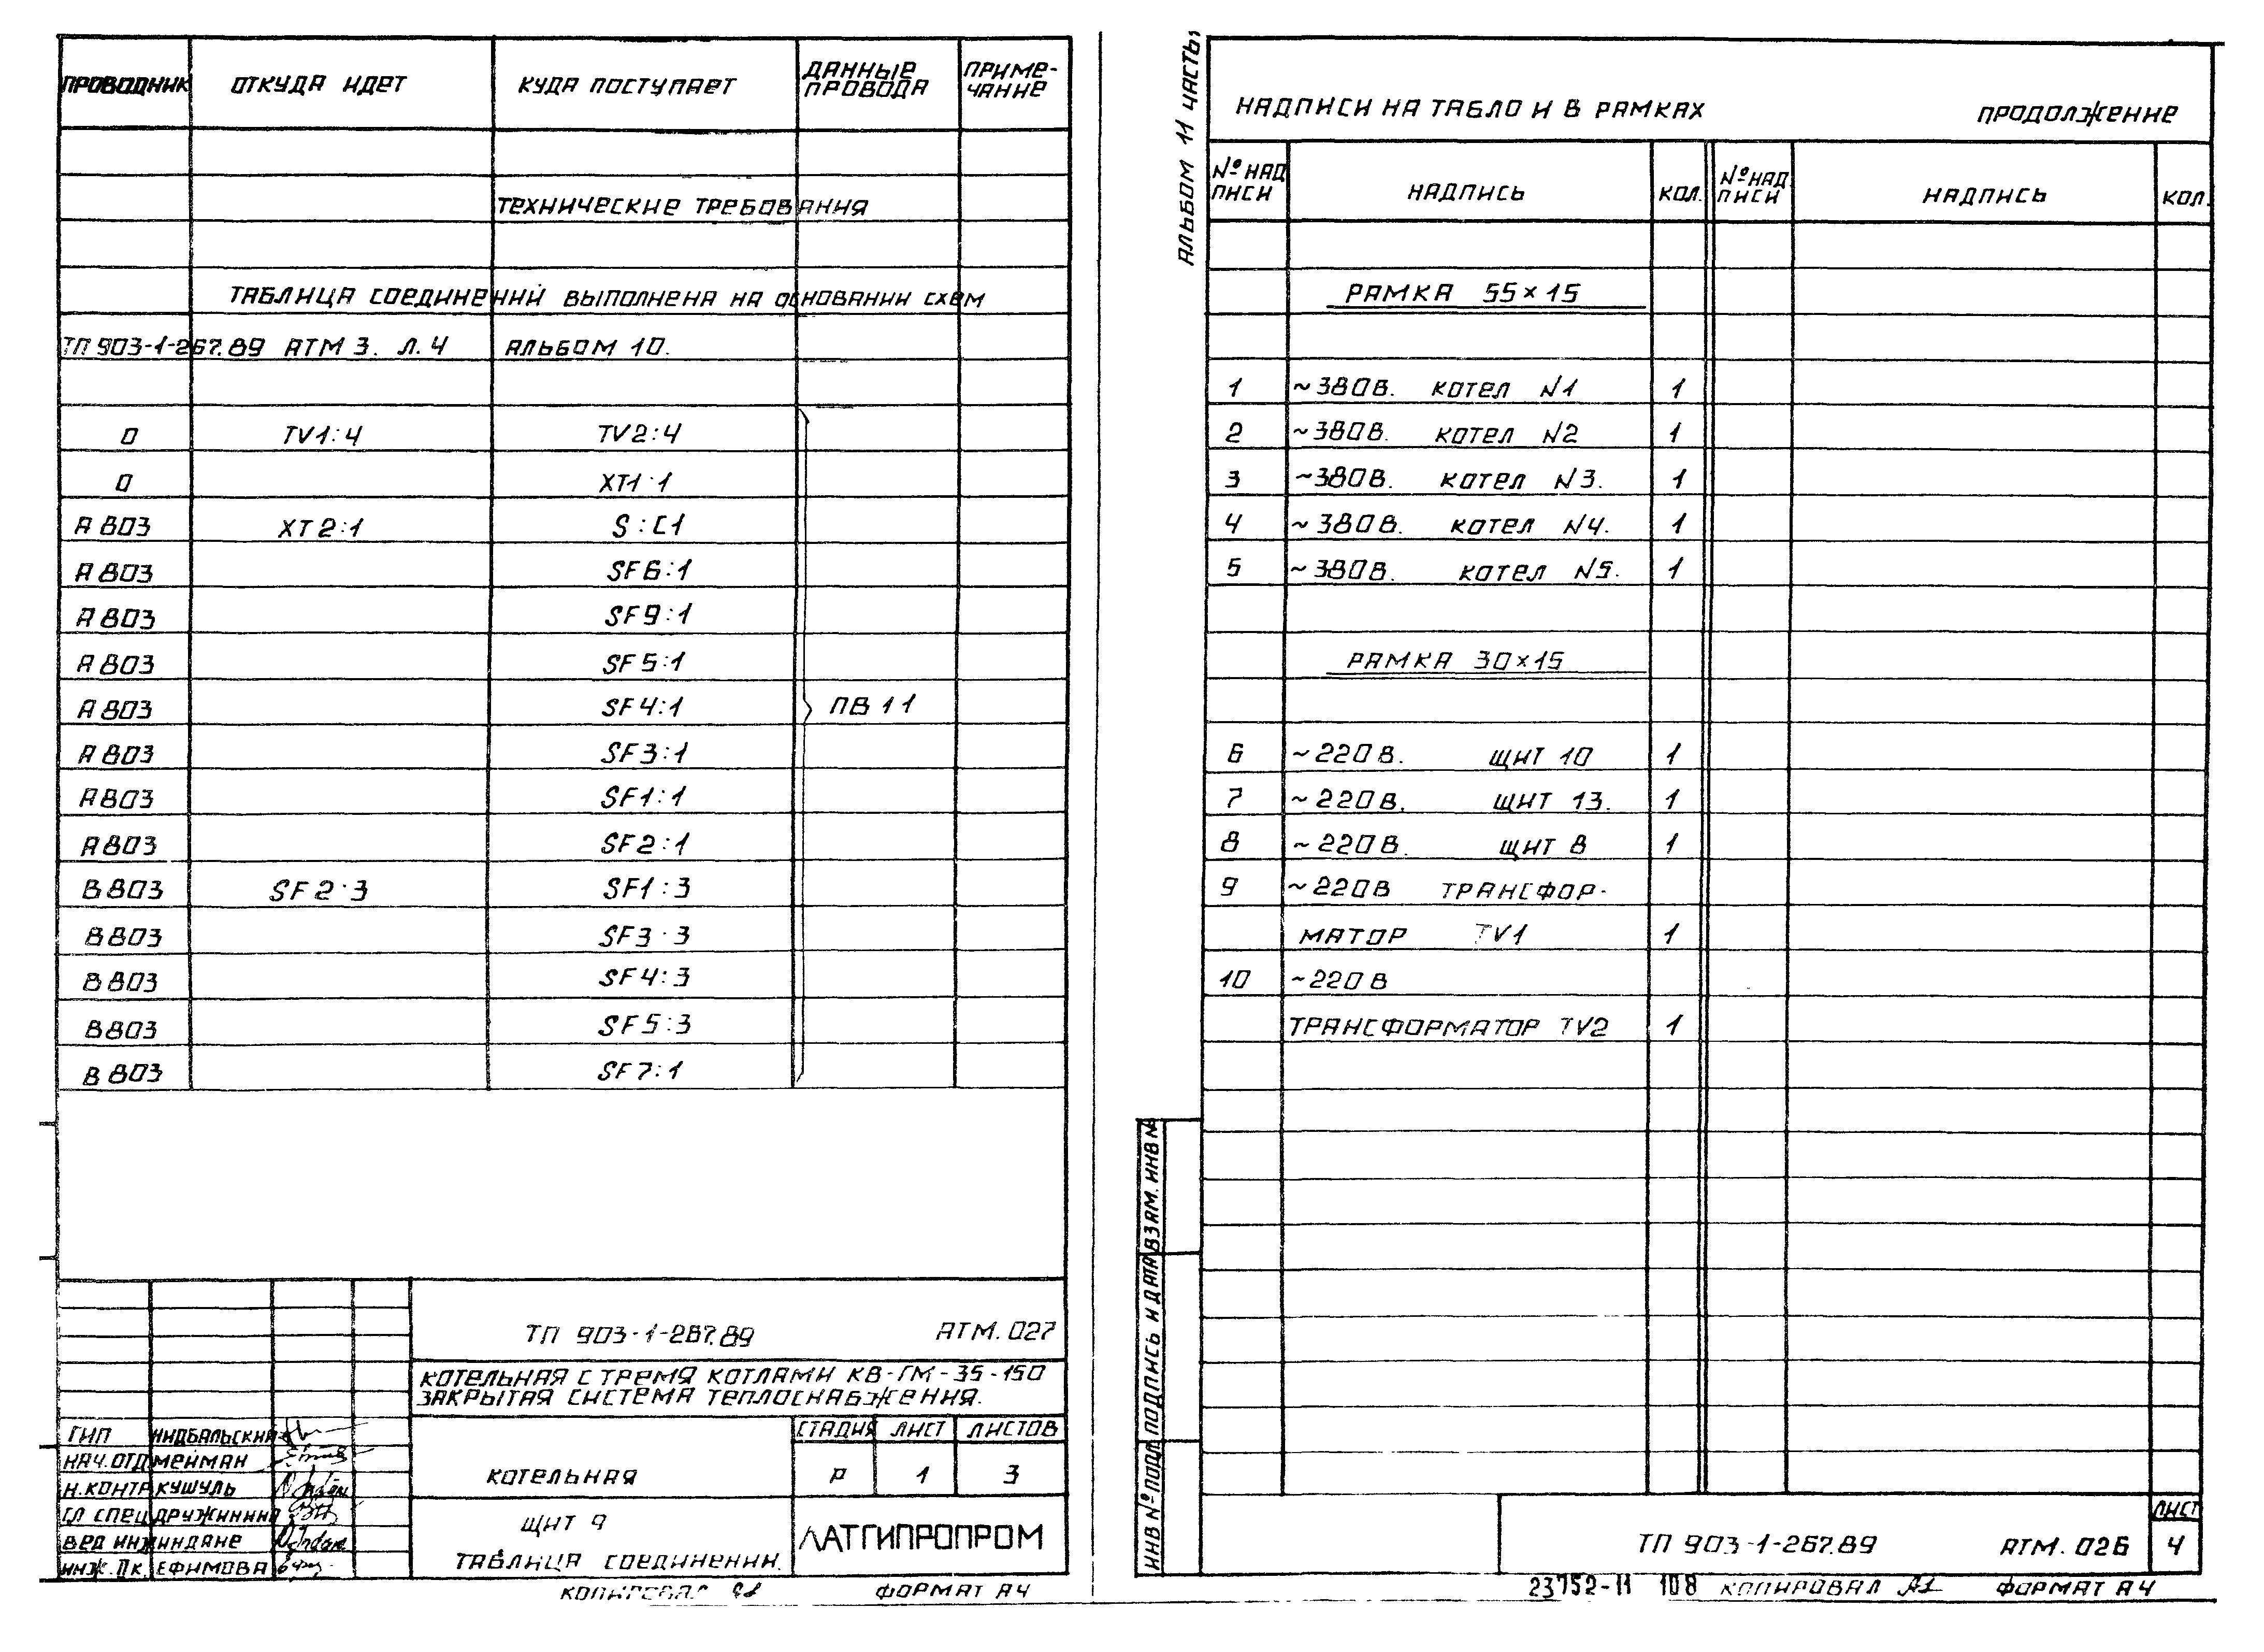 ПРОВОДНИК ОТКУДА ИДЕТ КУДА ПОСТУПАЕТ ДАННЫЕ ПРОВОДА ПРИМЕ-ЧАНИЕ
ТЕХНИЧЕСКИЕ ТРЕБОВАНИЯ
ТАБЛИЦА СОЕДИНЕНИЙ ВЫПОЛНЕНА НА ОСНОВАНИИ СХЕМ
ТП 903-1-267.89 АТМ 3. Л. 4 АЛЬБОМ 10.
0 TV1:4 TV2:4
0 XT1:1
А 803 XT2:1 S:C1
А 803 SF6:1
А 803 SF9:1
А 803 SF5:1
А 803 SF4:1 ПВ 1 1
А 803 SF3:1
А803 SF1:1
А803 SF2:1
В803 SF2:3 SF1:3
В803 SF3:3
В803 SF4:3
В803 SF5:3
В 803 SF7:1
ТП 903-1-267.89 АТМ.027
КОТЕЛЬНАЯ С ТРЕМЯ КОТЛАМИ КВ-ГМ-35-150
ЗАКРЫТАЯ СИСТЕМА ТЕПЛОСНАБЖЕНИЯ.
ГИП
НАЧ.ОТД МЕЙМАН
Н.КОНТР КУШУЛЬ
ГЛ СПЕЦ ДРУЖИНИНА
ВЕД ИНЖ ИНДАНЕ
ИНЖ. IIК. ЕФИМОВА
КОТЕЛЬНАЯ
СТАДИЯ ЛИСТ ЛИСТОВ
Р 1 3
ЩИТ 9
ТАБЛИЦА СОЕДИНЕНИЙ.
ЛАТГИПРОПРОМ
КОПИРОВАЛ ФОРМАТ А4
АЛЬБОМ 11 ЧАСТЬ 1
НАДПИСИ НА ТАБЛО И В РАМКАХ ПРОДОЛЖЕНИЕ
№ НАД ПИСИ НАДПИСЬ КОЛ. № НАД ПИСИ НАДПИСЬ КОЛ.
РАМКА 55×15
1 ~380В. КОТЕЛ N1 1
2 ~380В. КОТЕЛ N2 1
3 ~380В. КОТЕЛ N3. 1
4 ~380В. КОТЕЛ N4. 1
5 ~380В. КОТЕЛ N5. 1
РАМКА 30×15
6 ~220В. ЩИТ 10 1
7 ~220В. ЩИТ 13. 1
8 ~220В. ЩИТ 8 1
9 ~220В ТРАНСФОР-
МАТОР TV1 1
10 ~220В
ТРАНСФОРМАТОР TV2 1
ИНВ № ПОДЛ ПОДПИСЬ И ДАТА ВЗАМ. ИНВ №
ТП 903-1-267.89 АТМ.026
ЛИСТ
4
23752-11 108 КОПИРОВАЛ ФОРМАТ А4